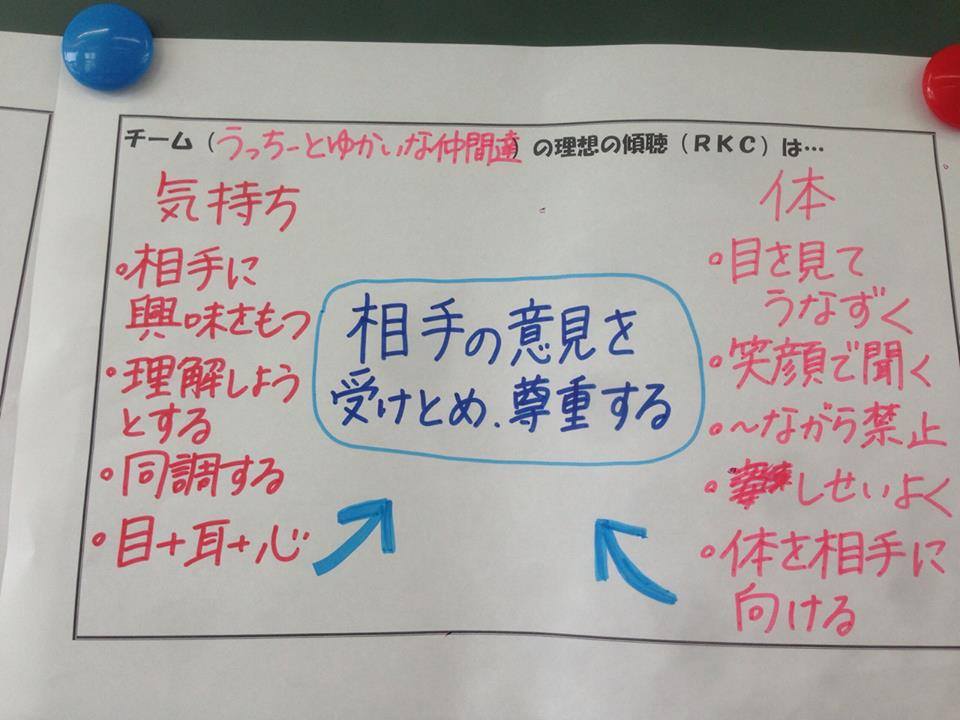 チーム（うっちーとゆかいな仲間達）の理想の傾聴（ＲＫＣ）は…
気持ち
・相手に
興味をもつ
・理解しよう
とする
・同調する
・目+耳+心
相手の意見を
受けとめ、尊重する
体
・目を見て
うなずく
・笑顔で聞く
・～ながら禁止
・しせいよく
・体を相手に
向ける